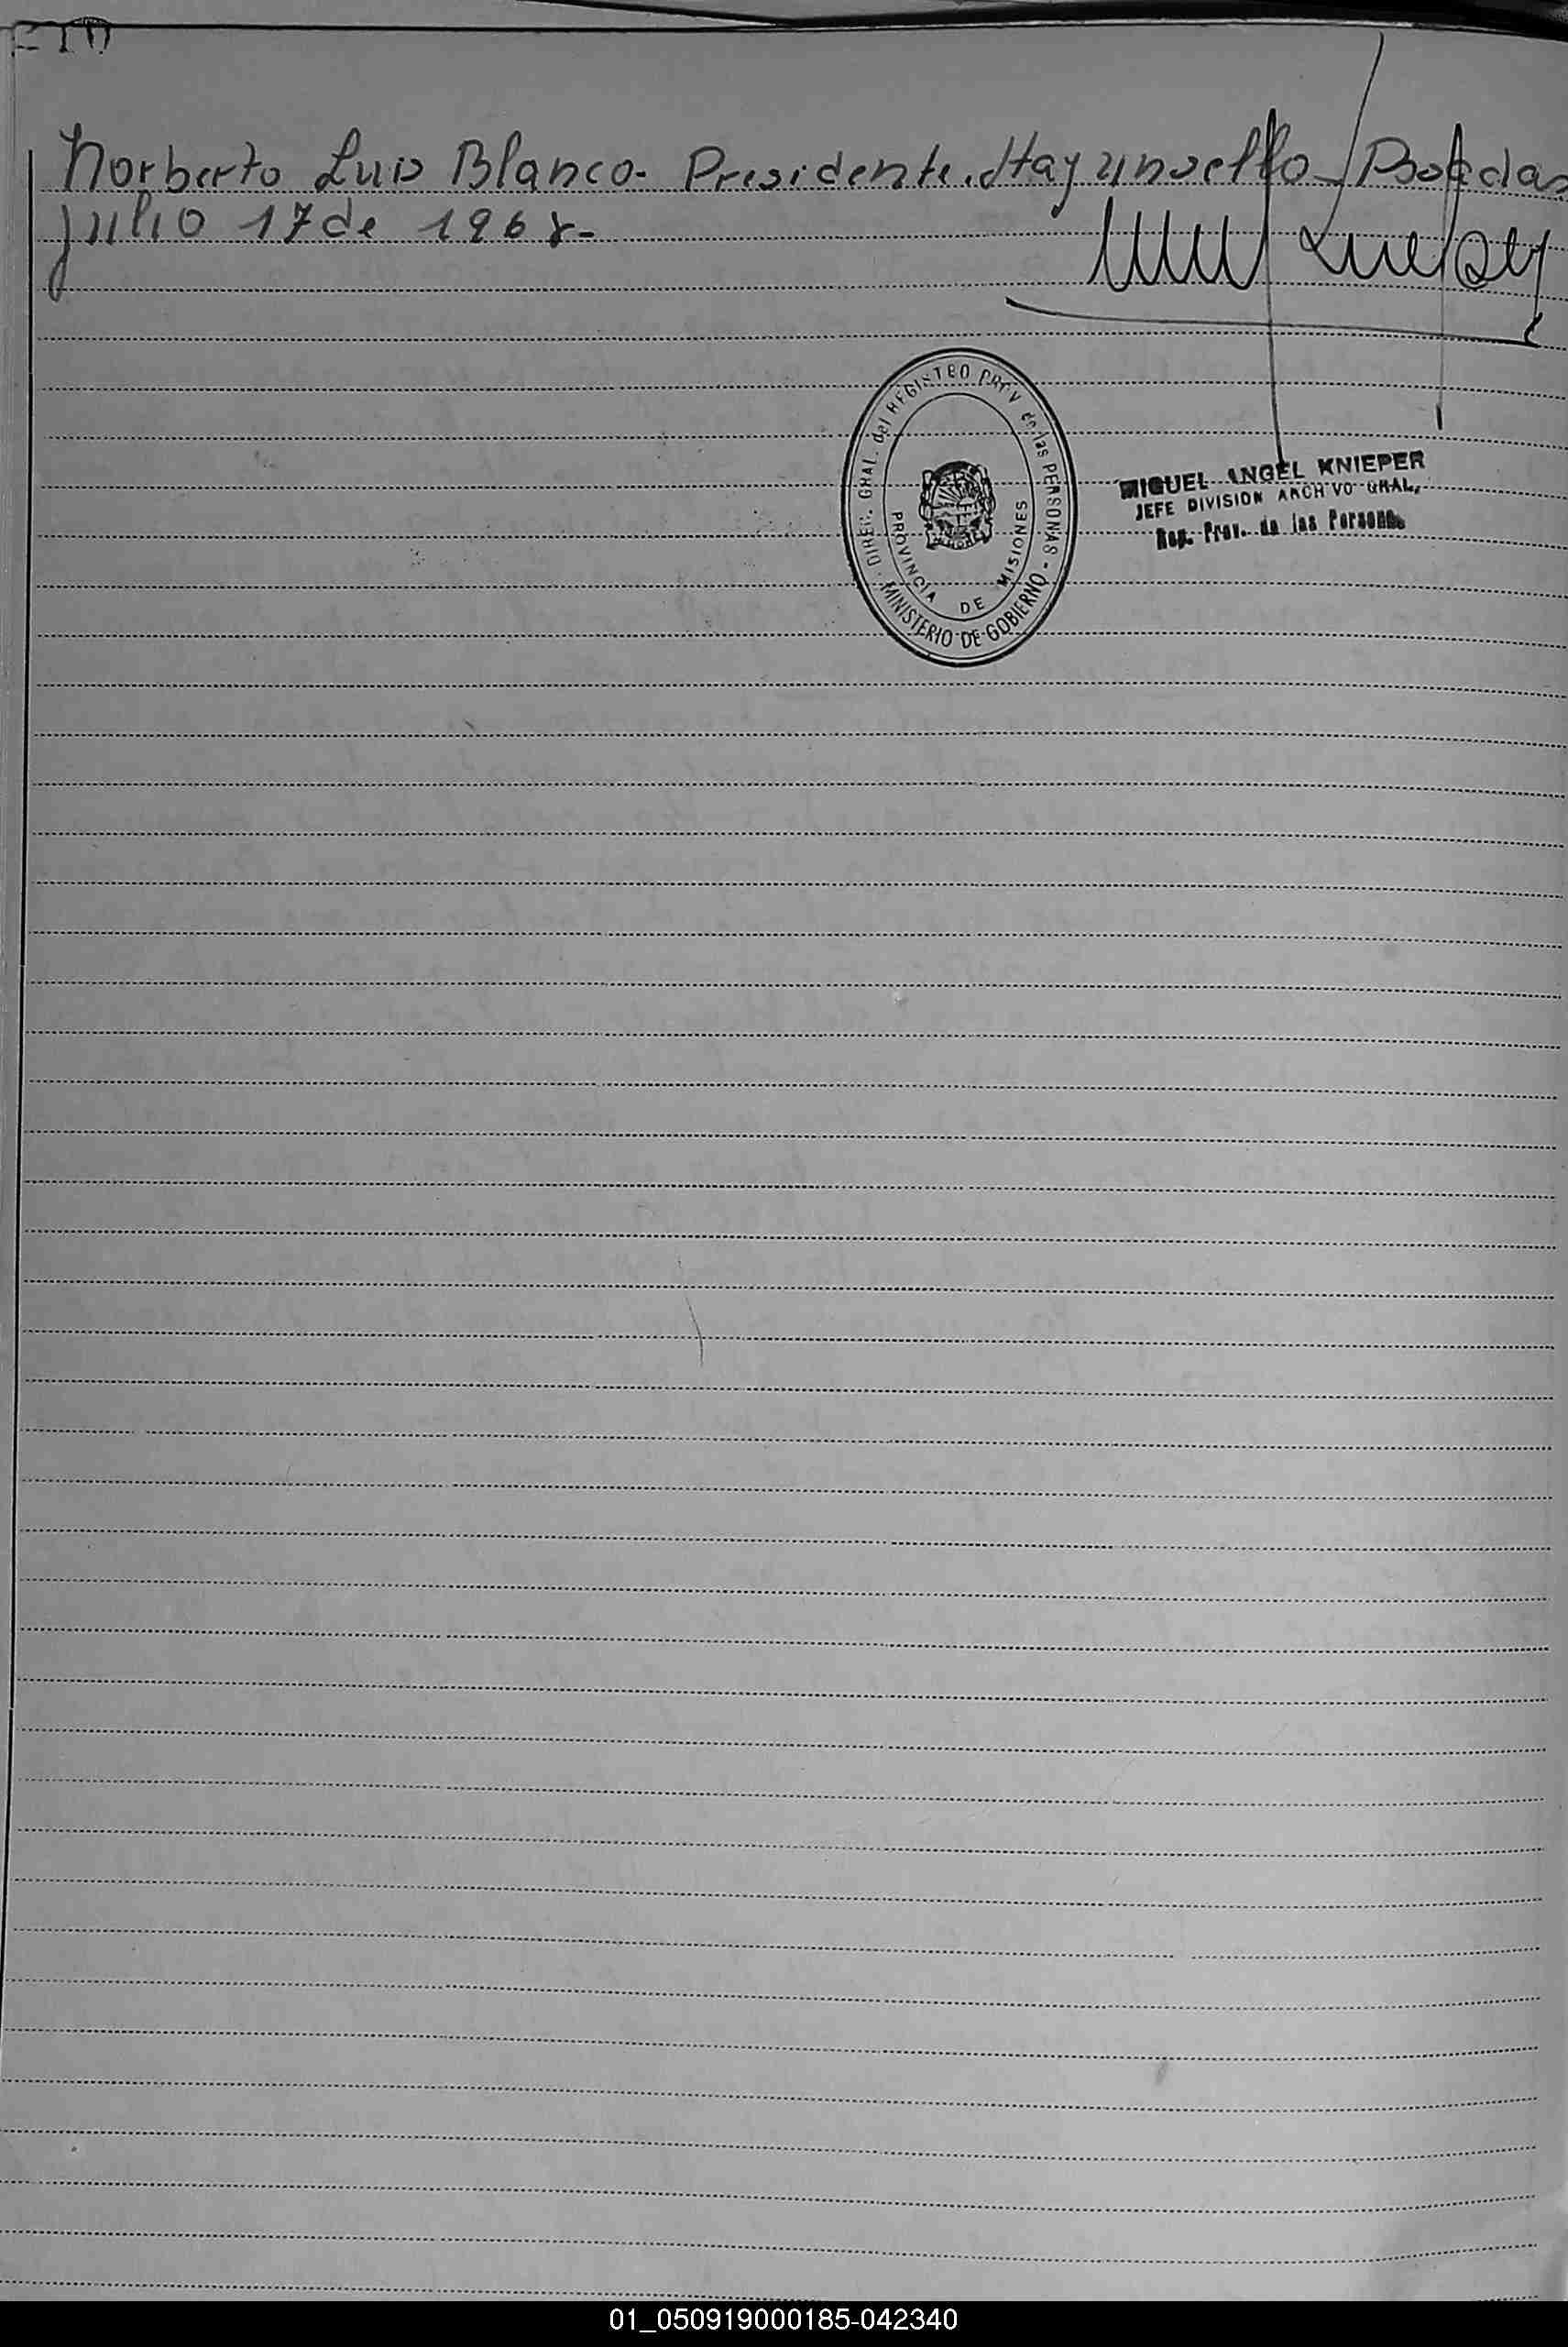 Norberto Luis Blanco. Presidente. Hay un sello - Posadas
julio 17 de 1968-
DIREC. GRAL. del REGISTRO PROV de las PERSONAS - MINISTERIO DE GOBIERNO
PROVINCIA DE MISIONES
MIGUEL ANGEL KNIEPER
JEFE DIVISION ARCHIVO GRAL.
Reg. Prov. de las Personas
01_050919000185-042340